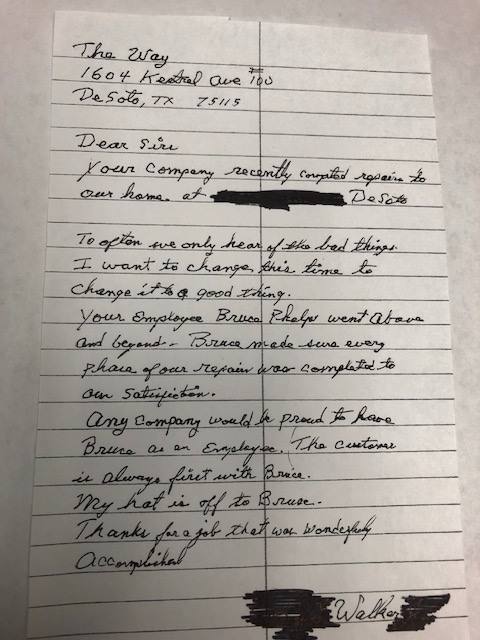 The Way
1604 Kestrel Ave #100
DeSoto, TX 75115
Dear Sir
Your Company recently completed repairs to
our home at DeSoto
To often we only hear of the bad things.
I want to change this time to
Change it to a good thing.
Your Employee Bruce Phelps went above
and beyond - Bruce made sure every
Phase of our repair was completed to
our Satisfiction.
Any Company would be proud to have
Bruce as an Employee. The customer
is always first with Bruce.
My hat is off to Bruce.
Thanks for a job that was wonderfuly
Accomplished
Walker